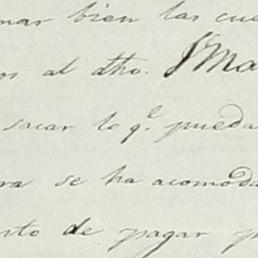 mar bien las cue
os al dho. J Ma
sacar lo q.e pueda
ra se ha acomoda
nto de pagar p